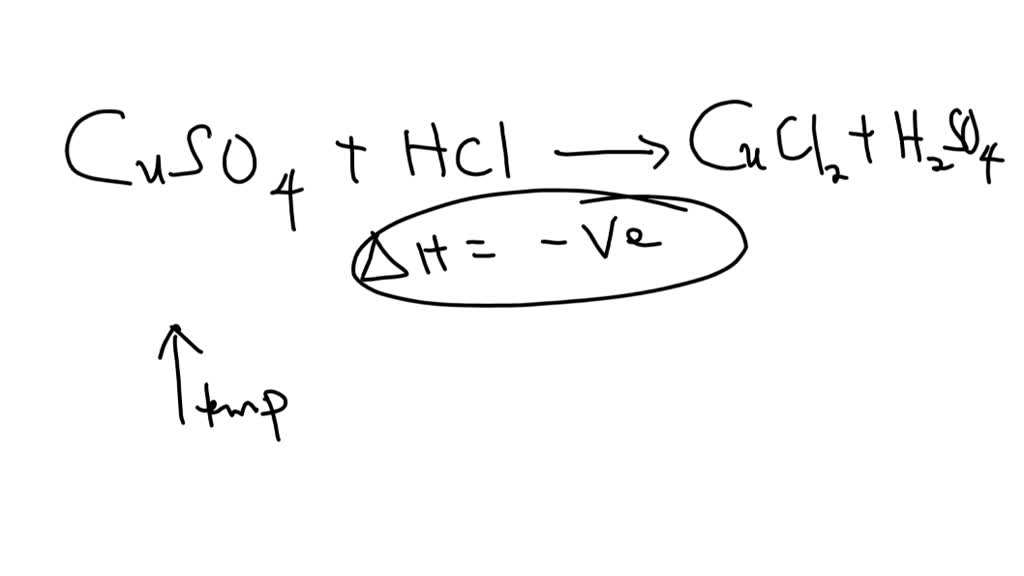 CuSO₄ + HCl → CuCl₂ + H₂SO₄
ΔH = -Ve
↑ temp